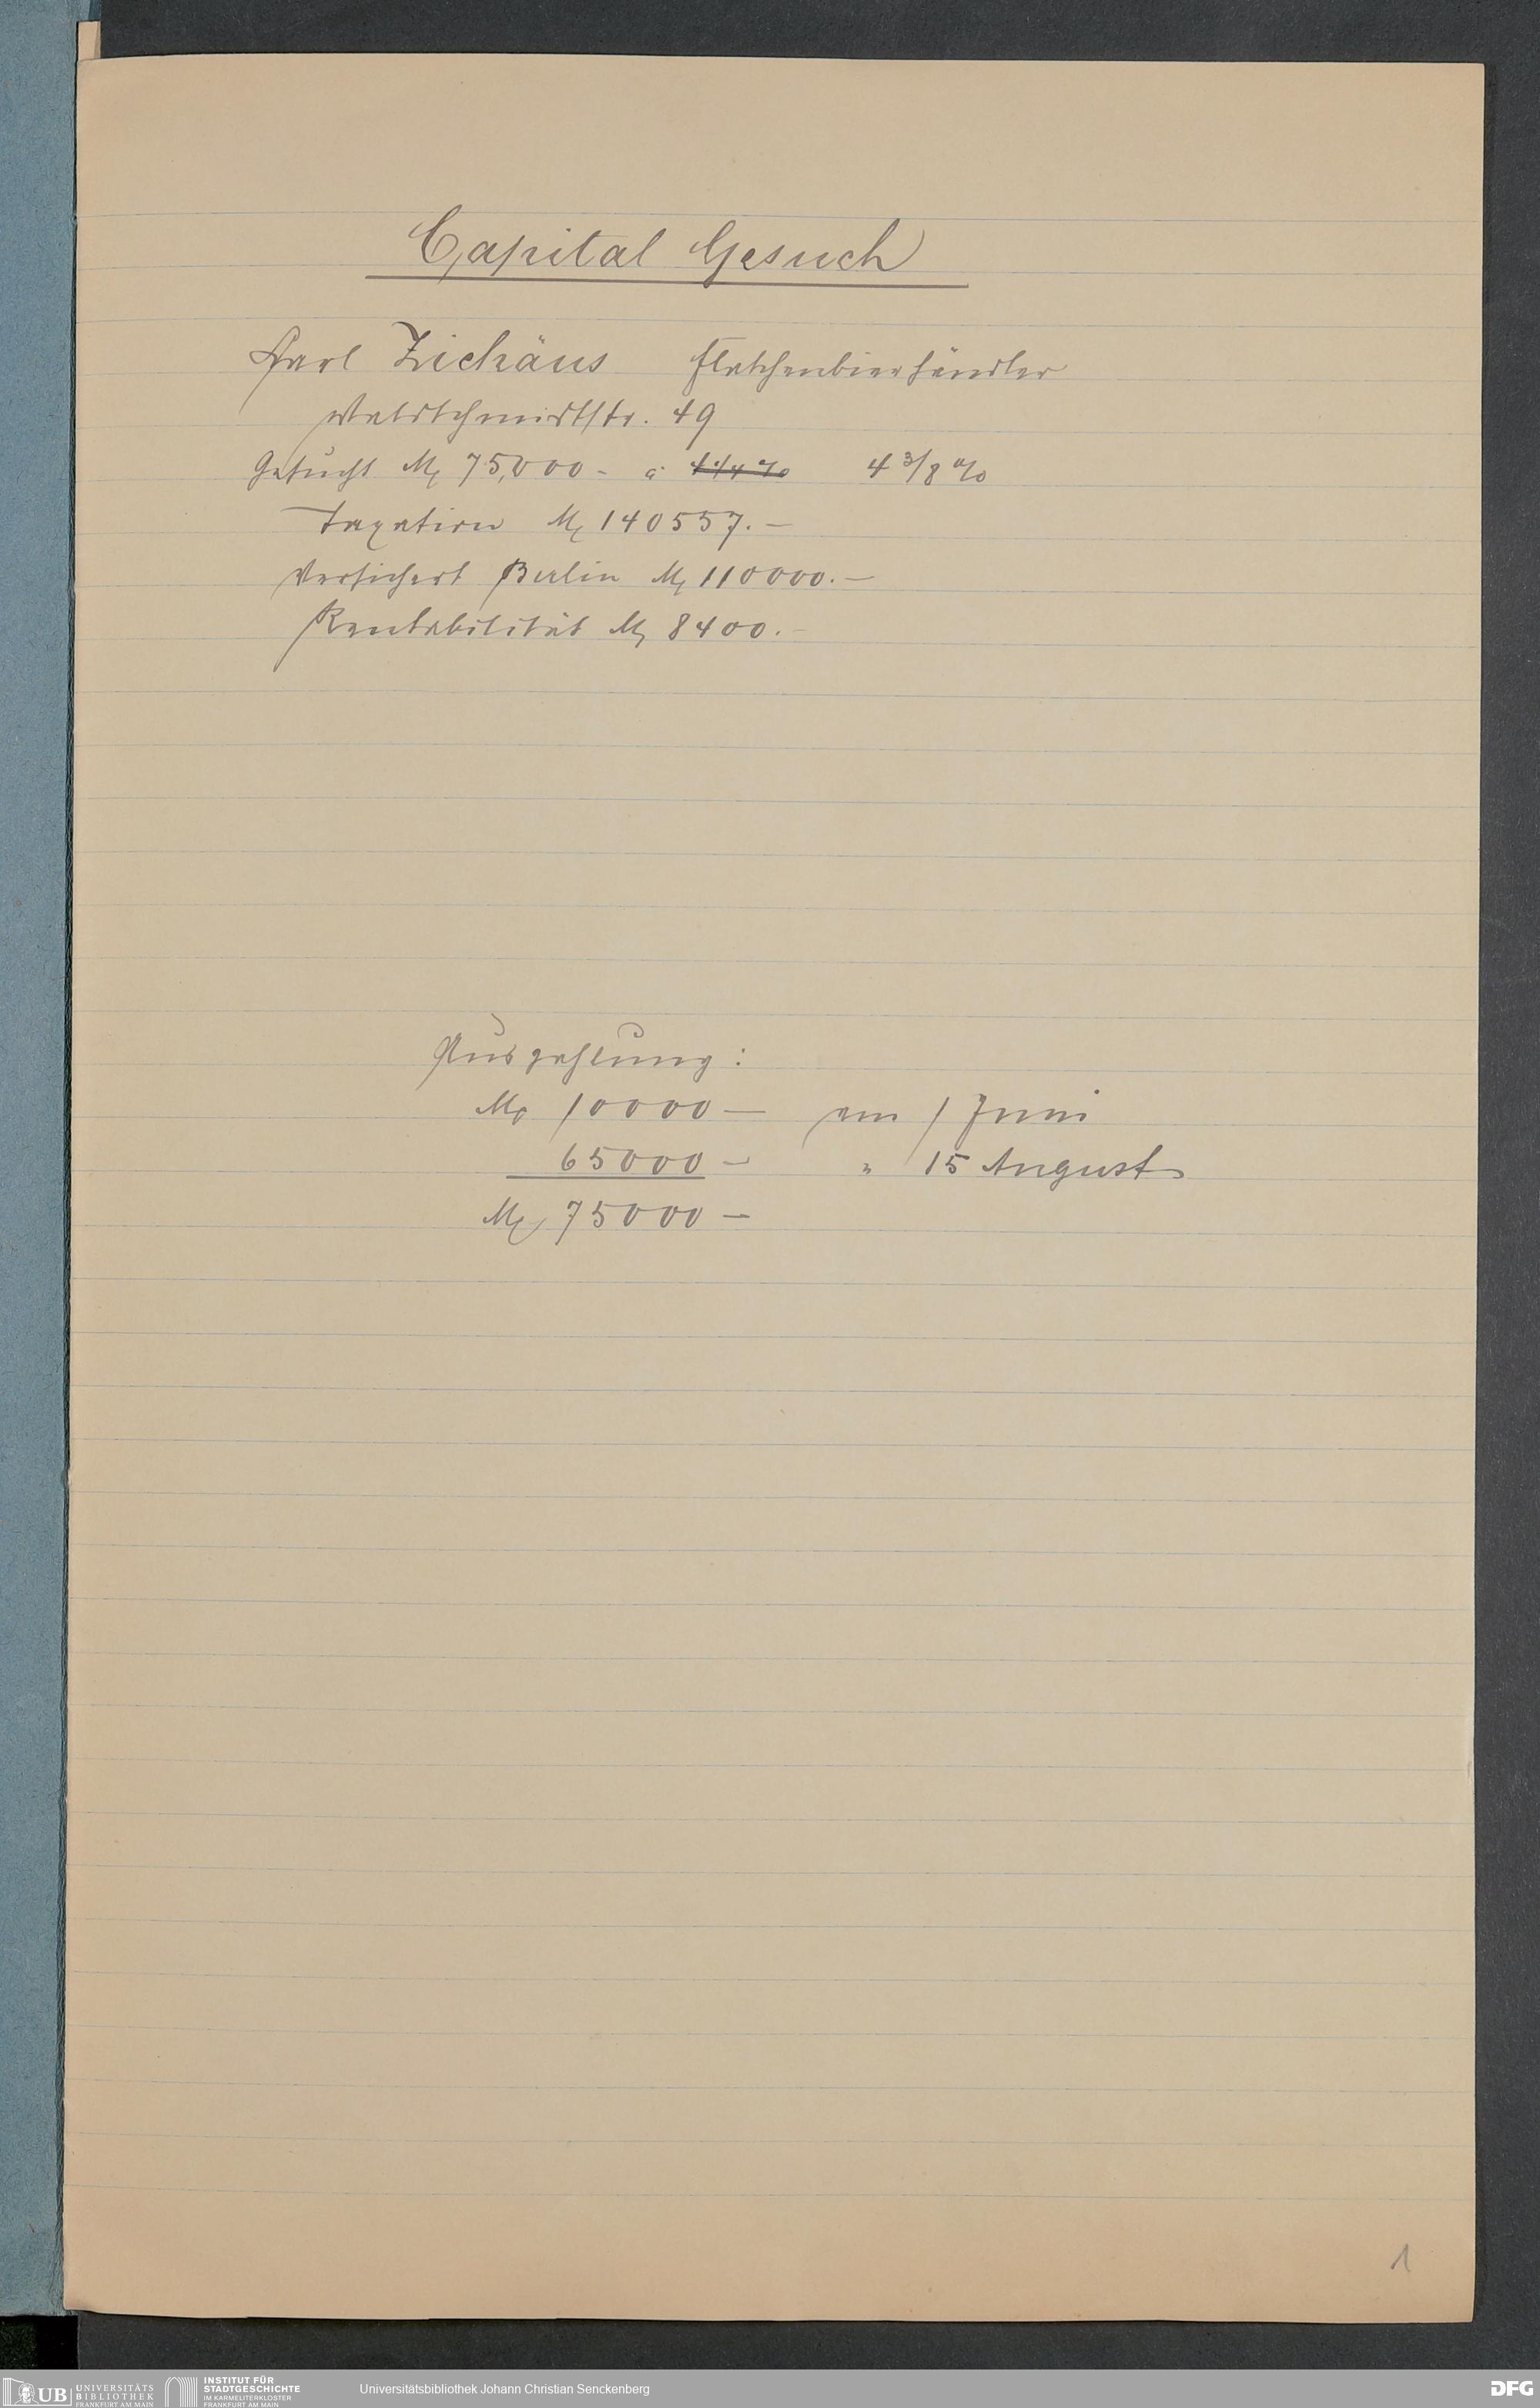 Capital Gesuch
Karl Zichäus Flaschenbierhändler
Waldschmidtstr. 49
Gesucht M 75,000 - à 4 1/4 % 4 3/8 %
Taxation M 140557. —
Versichert Berlin M 110000. —
Rentabilität M 8400. -
Auszahlung:
M 10000 — am 1 Juni
65000 — " 15 August
M 75000 —
1
UB UNIVERSITÄTS BIBLIOTHEK FRANKFURT AM MAIN
INSTITUT FÜR STADTGESCHICHTE IM KARMELITERKLOSTER FRANKFURT AM MAIN
Universitätsbibliothek Johann Christian Senckenberg
DFG